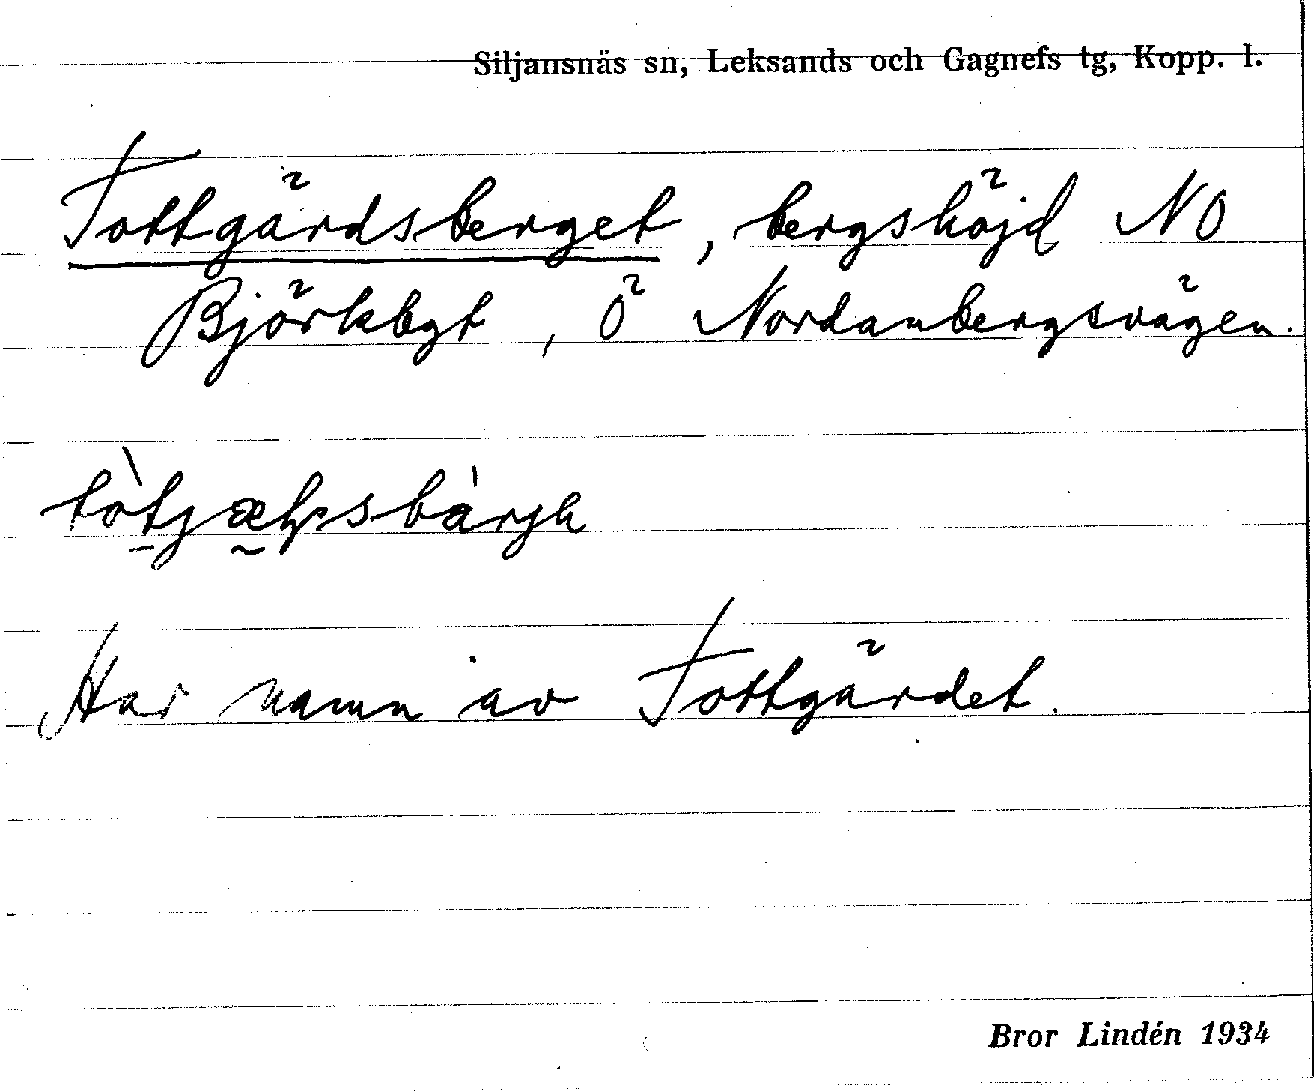 Siljansnäs sn, Leksands och Gagnefs tg, Kopp. l.
Tottgärdsberget, bergshöjd NO
Björkbgt, Ö Nordanbergsvägen.
Har namn av Tottgärdet.
Bror Lindén 1934